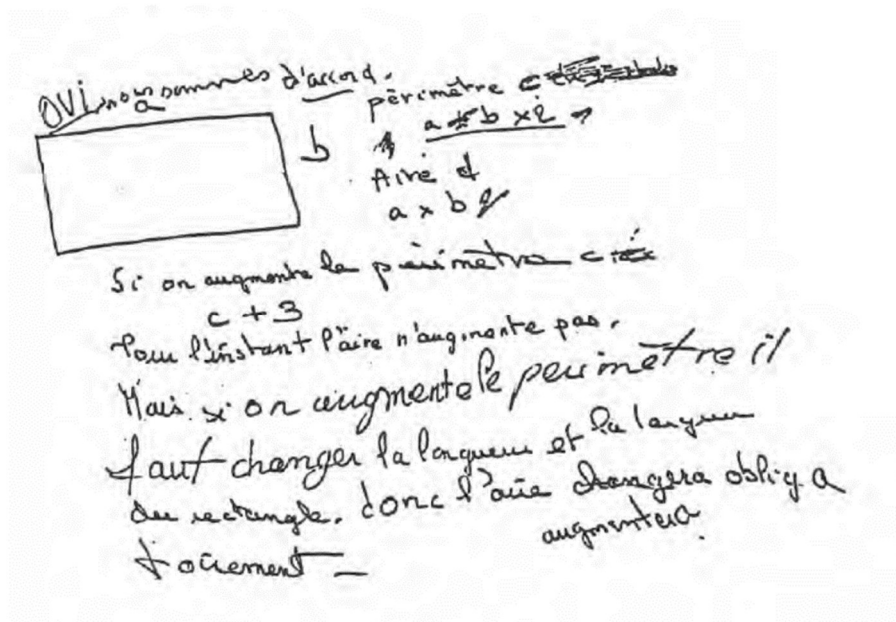 OUI nous sommes d'accord.
a
b
périmètre c
a + b x 2
Aire d
a x b
Si on augmente le périmètre c
c + 3
Pour l'instant l'aire n'augmente pas.
Mais si on augmente le perimètre il
faut changer la longueur et la largeur
du rectangle. donc l'aire changera obliga
augmentera
toirement